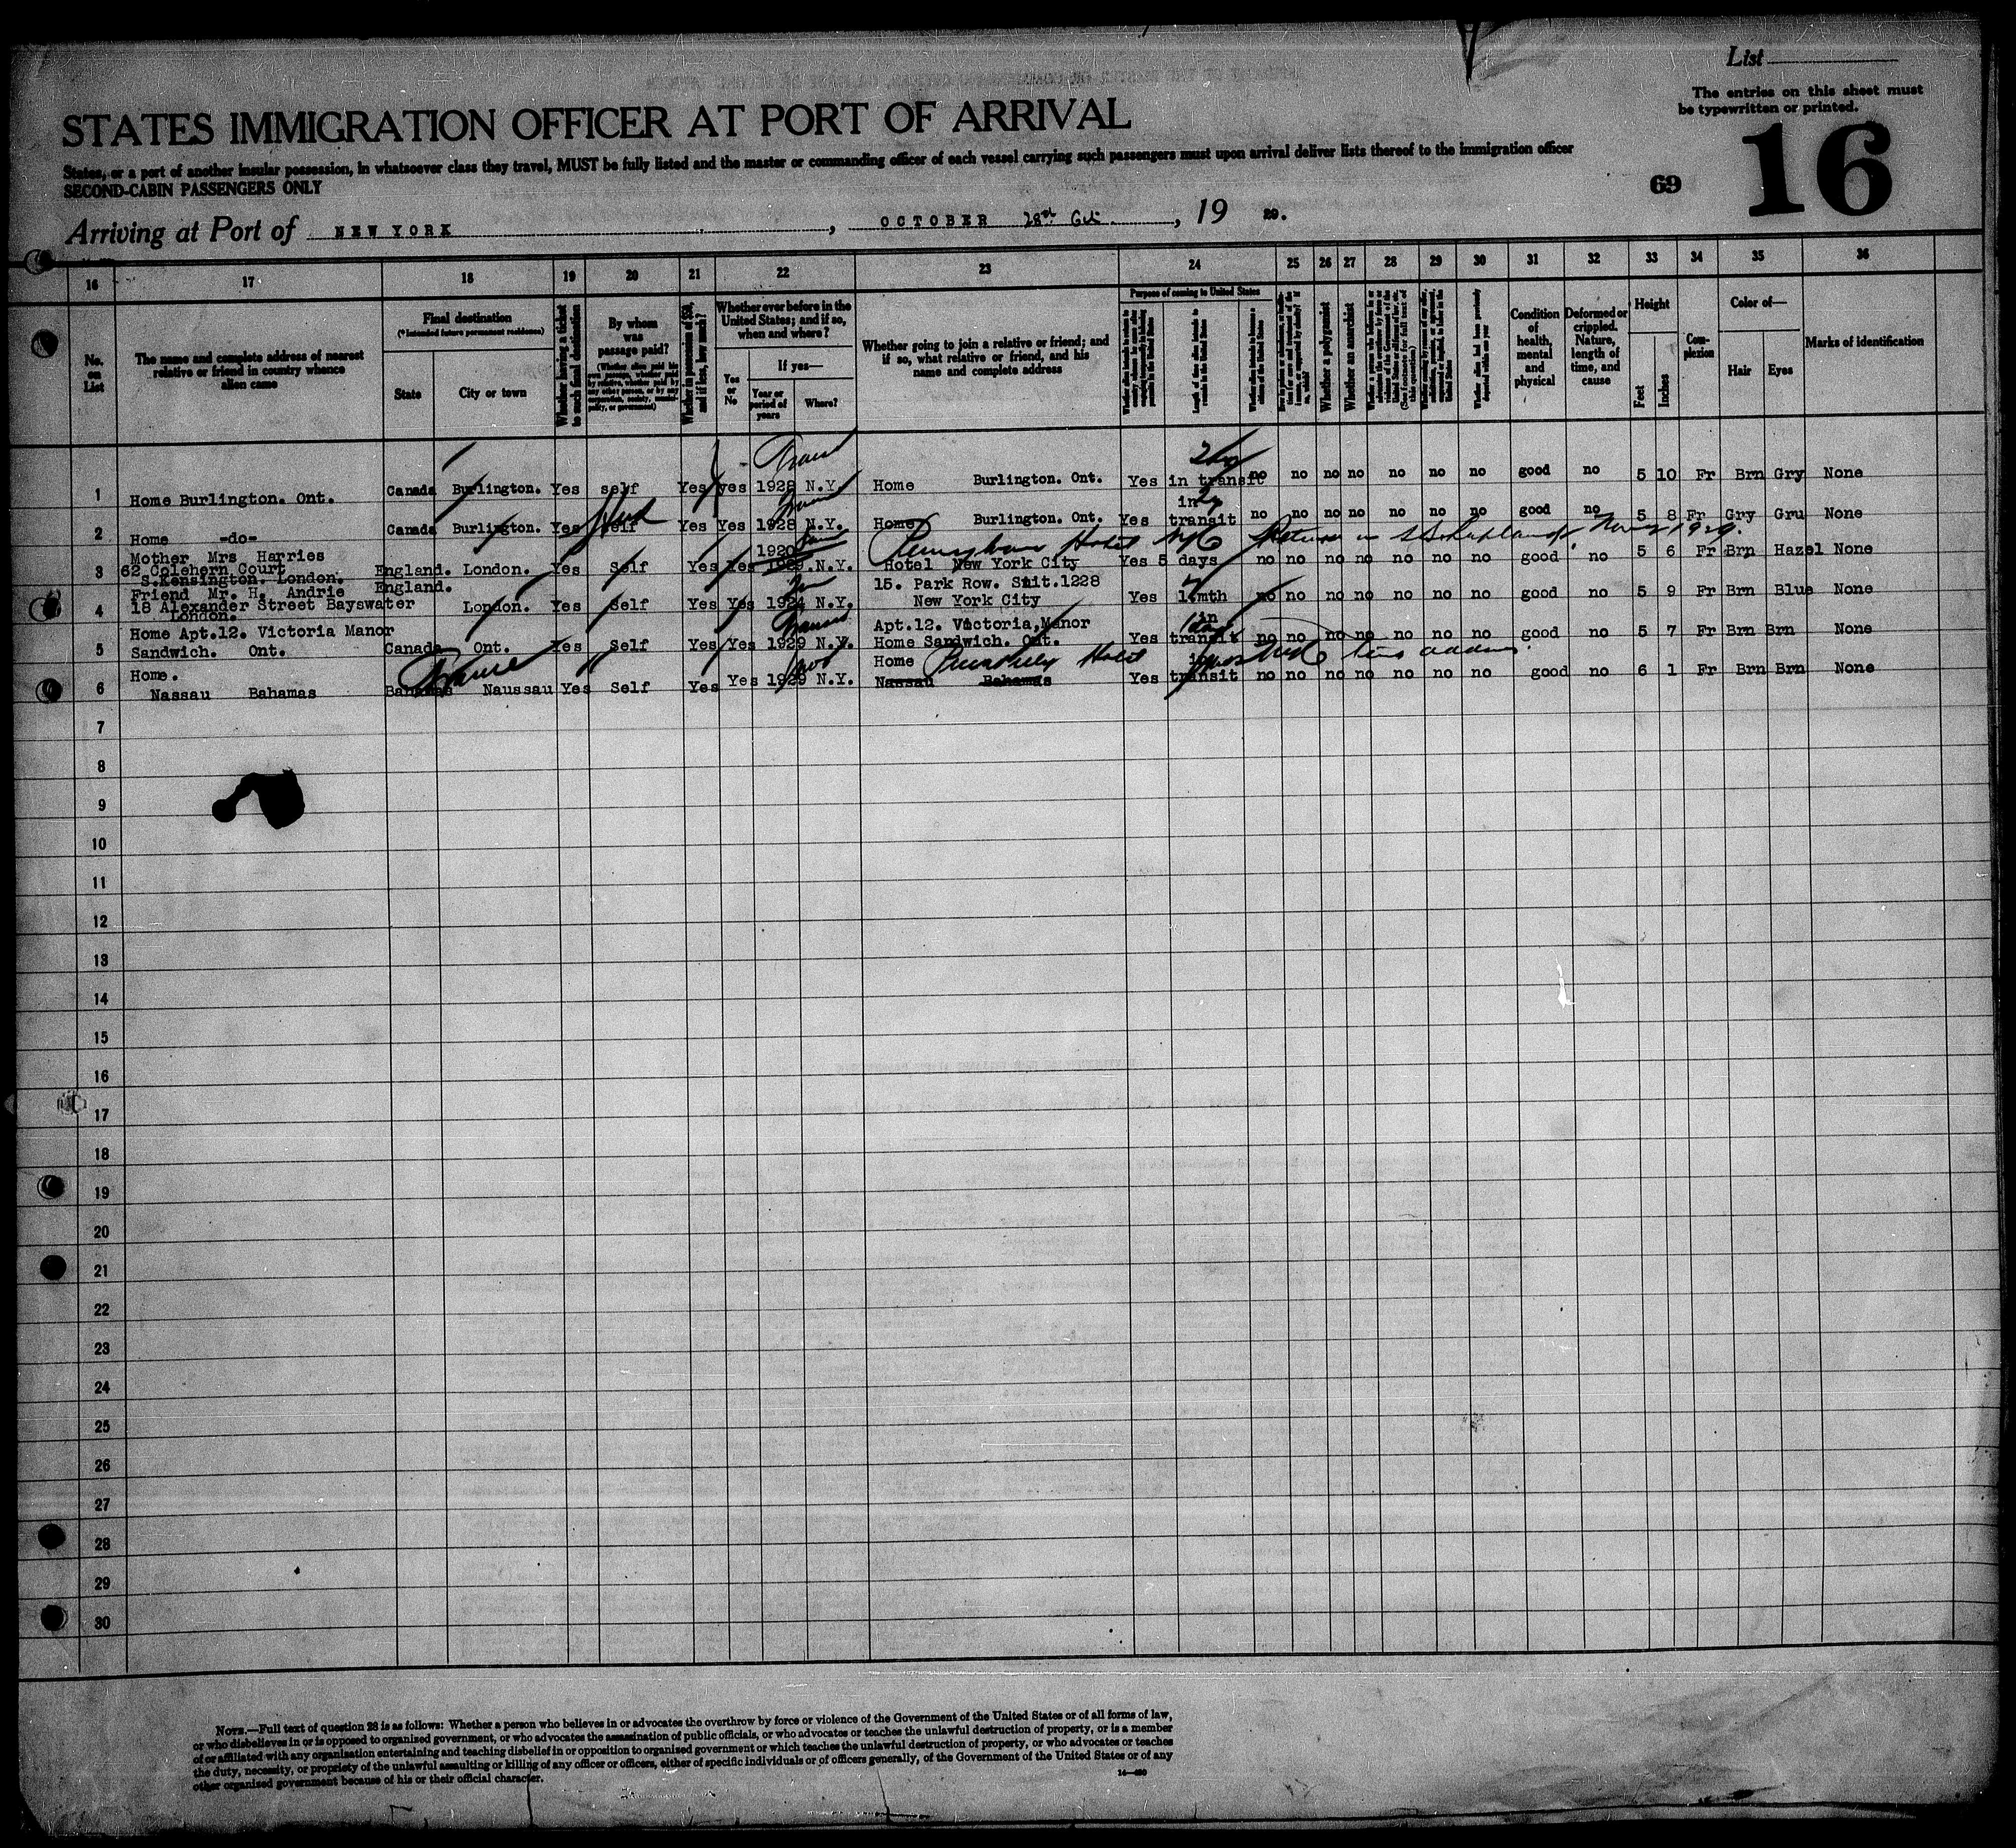 List
The entries on this sheet must
be typewritten or printed.
STATES IMMIGRATION OFFICER AT PORT OF ARRIVAL
16
States, or a port of another insular possession, in whatsoever class they travel, MUST be fully listed and the master or commanding officer of each vessel carrying such passengers must upon arrival deliver lists thereof to the immigration officer
SECOND-CABIN PASSENGERS ONLY
69
Arriving at Port of NEW YORK, OCTOBER 28th, 19 29.
16 17 18 19 20 21 22 23 24 25 26 27 28 29 30 31 32 33 34 35 36
No. on List
The name and complete address of nearest relative or friend in country whence alien came
Final destination
(*Intended future permanent residence)
State
City or town
Whether having a ticket to such final destination
By whom was passage paid?
Whether in possession of $50, and if less, how much?
Whether ever before in the United States; and if so, when and where?
Yes or No
If yes—
Year or period of years
Where?
Whether going to join a relative or friend; and if so, what relative or friend, and his name and complete address
Purpose of coming to United States
Length of time alien intends to remain in the United States
Whether a polygamist
Whether an anarchist
Condition of health, mental and physical
Deformed or crippled. Nature, length of time, and cause
Height
Feet
Inches
Complexion
Color of—
Hair
Eyes
Marks of identification
1 Home Burlington. Ont. Canada Burlington. Yes self Yes yes 1928 N.Y. Home Burlington. Ont. Yes in transit no no no no no no no good no 5 10 Fr Brn Gry None
2 Home -do- Canada Burlington. Yes self Yes Yes 1928 N.Y. Home Burlington. Ont. Yes in transit no no no no no no no good no 5 8 Fr Gry Gru None
Hotel NYC Return Nov 2 1929.
3 Mother Mrs Harries
62 Colehern Court
S.Kensington. London. England. London. Yes Self Yes Yes 1920 N.Y. Hotel New York City Yes 5 days no no no no no no no good no 5 6 Fr Brn Hazel None
4 Friend Mr. H. Andrie
18 Alexander Street Bayswater
London. England. London. Yes Self Yes Yes 1924 N.Y. 15. Park Row. Suit.1228
New York City Yes 1.mth no no no no no no no good no 5 9 Fr Brn Blue None
5 Home Apt.12. Victoria Manor
Sandwich. Ont. Canada Ont. Yes Self Yes Yes 1929 N.Y. Apt.12. Victoria Manor
Home Sandwich. Ont. Yes in transit no no no no no no no good no 5 7 Fr Brn Brn None
6 Home.
Nassau Bahamas Bahamas Naussau Yes Self Yes Yes 1929 N.Y. Home Hotel
Nassau Bahamas Yes in transit no no no no no no no good no 6 1 Fr Brn Brn None
7
8
9
10
11
12
13
14
15
16
17
18
19
20
21
22
23
24
25
26
27
28
29
30
NOTE.—Full text of question 28 is as follows: Whether a person who believes in or advocates the overthrow by force or violence of the Government of the United States or of all forms of law,
or who disbelieves in or is opposed to organized government, or who advocates the assassination of public officials, or who advocates or teaches the unlawful destruction of property, or is a member
of or affiliated with any organization entertaining and teaching disbelief in or opposition to organized government or which teaches the unlawful destruction of property, or who advocates or teaches
the duty, necessity, or propriety of the unlawful assaulting or killing of any officer or officers, either of specific individuals or of officers generally, of the Government of the United States or of any
other organized government because of his or their official character.
14—430